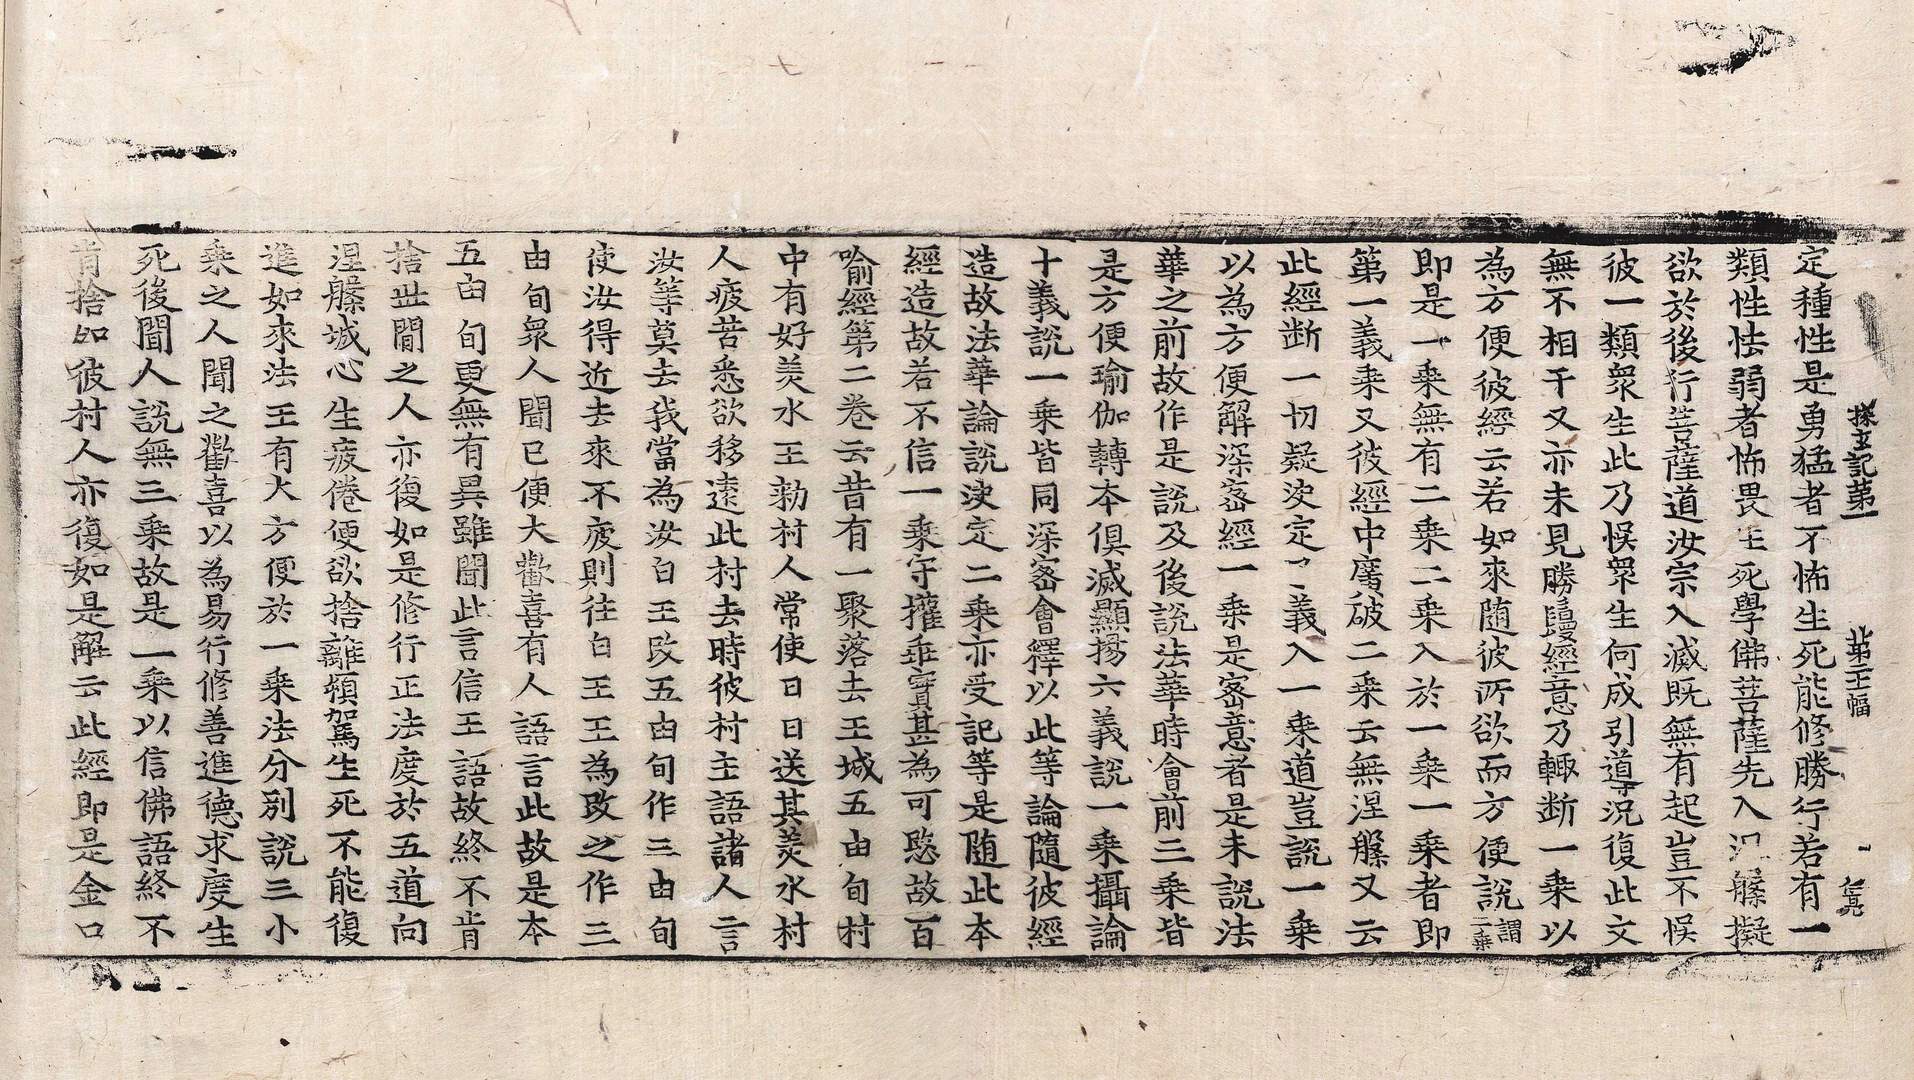 探玄記第一
第三十幅
定種性是勇猛者不怖生死能修勝行若有一
類性怯弱者怖畏生死學佛菩薩先入涅槃擬
欲於後行菩薩道汝宗入滅既無有起豈不悞
彼一類衆生此乃悞衆生何成引導況復此文
無不相干又亦未見勝鬘經意乃輙断一乗以
為方便彼經云若如來随彼所欲而方便說謂二乗
即是一乗無有二乗二乗入於一乗一乗者即
第一義乗又彼經中廣破二乗云無涅槃又云
此經断一切疑决定了義入一乗道豈說一乗
以為方便解深密經一乗是密意者是未說法
華之前故作是說及後說法華時會前三乗皆
是方便瑜伽轉本俱滅顯揚六義說一乗攝論
十義說一乗皆同深密會釋以此等論隨彼經
造故法華論說决定二乗亦受記等是随此本
經造故若不信一乗守權乖實甚為可愍故百
喻經第二卷云昔有一聚落去王城五由旬村
中有好美水王勑村人常使日日送其美水村
人疲苦悉欲移遠此村去時彼村主語諸人言
汝等莫去我當為汝白王改五由旬作三由旬
使汝得近去來不疲則往白王王為改之作三
由旬衆人聞已便大歡喜有人語言此故是本
五由旬更無有異雖聞此言信王語故終不肯
捨世間之人亦復如是修行正法度於五道向
涅槃城心生疲倦便欲捨離頓駕生死不能復
進如來法王有大方便於一乗法分別說三小
乗之人聞之歡喜以為易行修善進德求度生
死後聞人說無三乗故是一乗以信佛語終不
肯捨如彼村人亦復如是解云此經即是金口